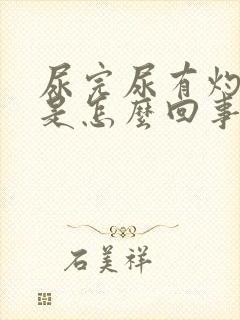 尿完尿有灼
是怎麽回事
石美祥